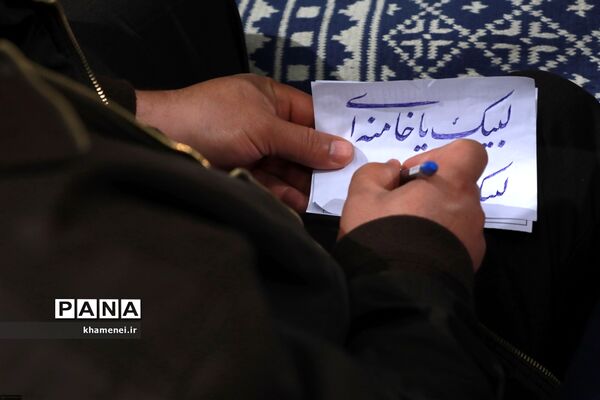 لبیک یا خامنه ای
لبیک
PANA
khamenei.ir